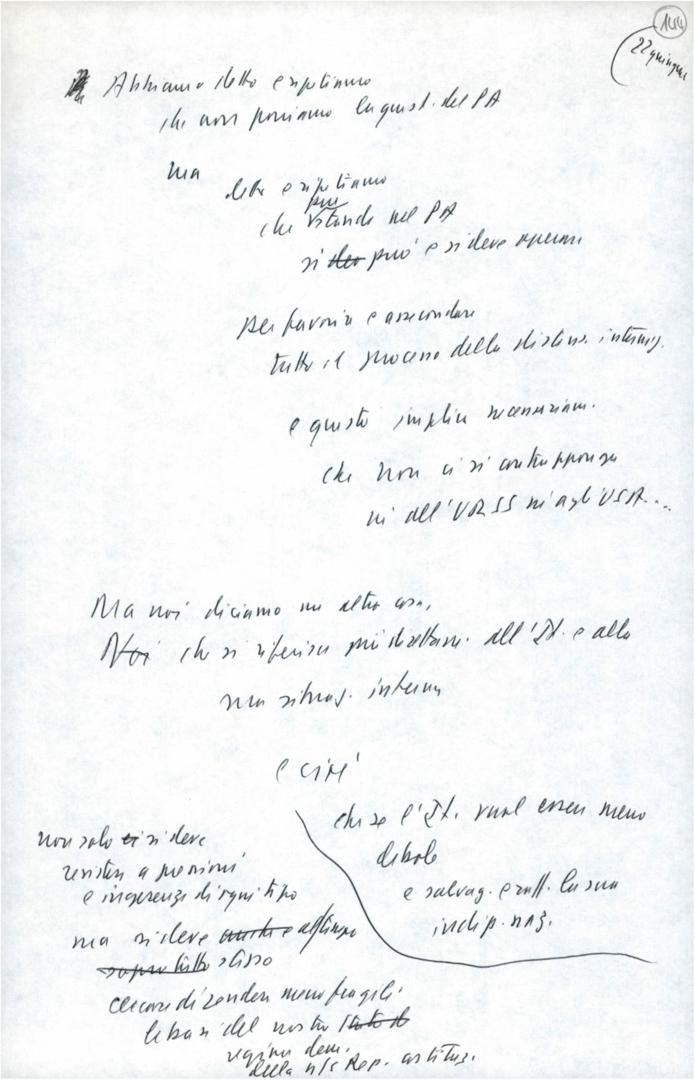 144
22 quinques
Abbiamo detto e ripetiamo
che non poniamo la quest. del PA
ma
detto e ripetiamo
pur
che stando nel PA
si deo può e si deve operare
per favorire e assecondare
tutto il processo della distens. internaz.
e questo implica necessariam.
che non ci si contrapponga
né all'URSS né agli USA...
Ma noi diciamo un'altra cosa,
Noi che si riferisce più direttam. all'It. e alla
sua situaz. interna
e cioè
che se l'It. vuol essere meno
debole
e salvag. e raff. la sua
indip. naz.
non solo ci si deve
resistere a pressioni
e ingerenze di ogni tipo
ma si deve anche al tempo
soprattutto stesso
cercare di rendere meno fragili
le basi del nostro
regime dem.
della ns Rep. costituz.